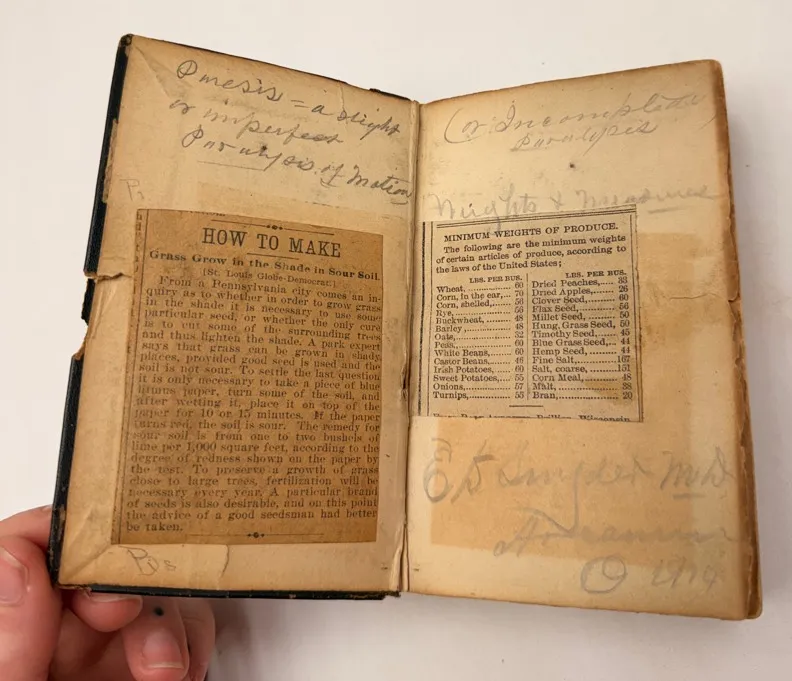 Paresis = a slight
or imperfect
Paralysis of Motion
HOW TO MAKE
Grass Grow in the Shade in Sour Soil.
[St. Louis Globe-Democrat.]
From a Pennsylvania city comes an in-
quiry as to whether in order to grow grass
in the shade it is necessary to use some
particular seed, or whether the only cure
is to cut some of the surrounding trees
and thus lighten the shade. A park expert
says that grass can be grown in shady
places, provided good seed is used and the
soil is not sour. To settle the last question
it is only necessary to take a piece of blue
litmus paper, turn some of the soil, and
after wetting it, place it on top of the
paper for 10 or 15 minutes. If the paper
turns red, the soil is sour. The remedy for
sour soil is from one to two bushels of
lime per 1,000 square feet, according to the
degree of redness shown on the paper by
the test. To preserve a growth of grass
close to large trees, fertilization will be
necessary every year. A particular brand
of seeds is also desirable, and on this point
the advice of a good seedsman had better
be taken.
(or Incomplete
Paralysis
Weights & Measures
MINIMUM WEIGHTS OF PRODUCE.
The following are the minimum weights
of certain articles of produce, according to
the laws of the United States;
LBS. PER BUS.
Wheat, 60
Corn, in the ear, 70
Corn, shelled, 56
Rye, 56
Buckwheat, 48
Barley 48
Oats, 32
Peas, 60
White Beans, 60
Castor Beans, 46
Irish Potatoes, 60
Sweet Potatoes, 55
Onions, 57
Turnips, 55
LBS. PER BUS.
Dried Peaches, 33
Dried Apples, 26
Clover Seed, 60
Flax Seed, 56
Millet Seed, 50
Hung. Grass Seed, 50
Timothy Seed, 45
Blue Grass Seed, 44
Hemp Seed, 44
Fine Salt, 167
Salt, coarse, 151
Corn Meal, 48
Malt, 38
Bran, 20
Wisconsin
MD
O 1914